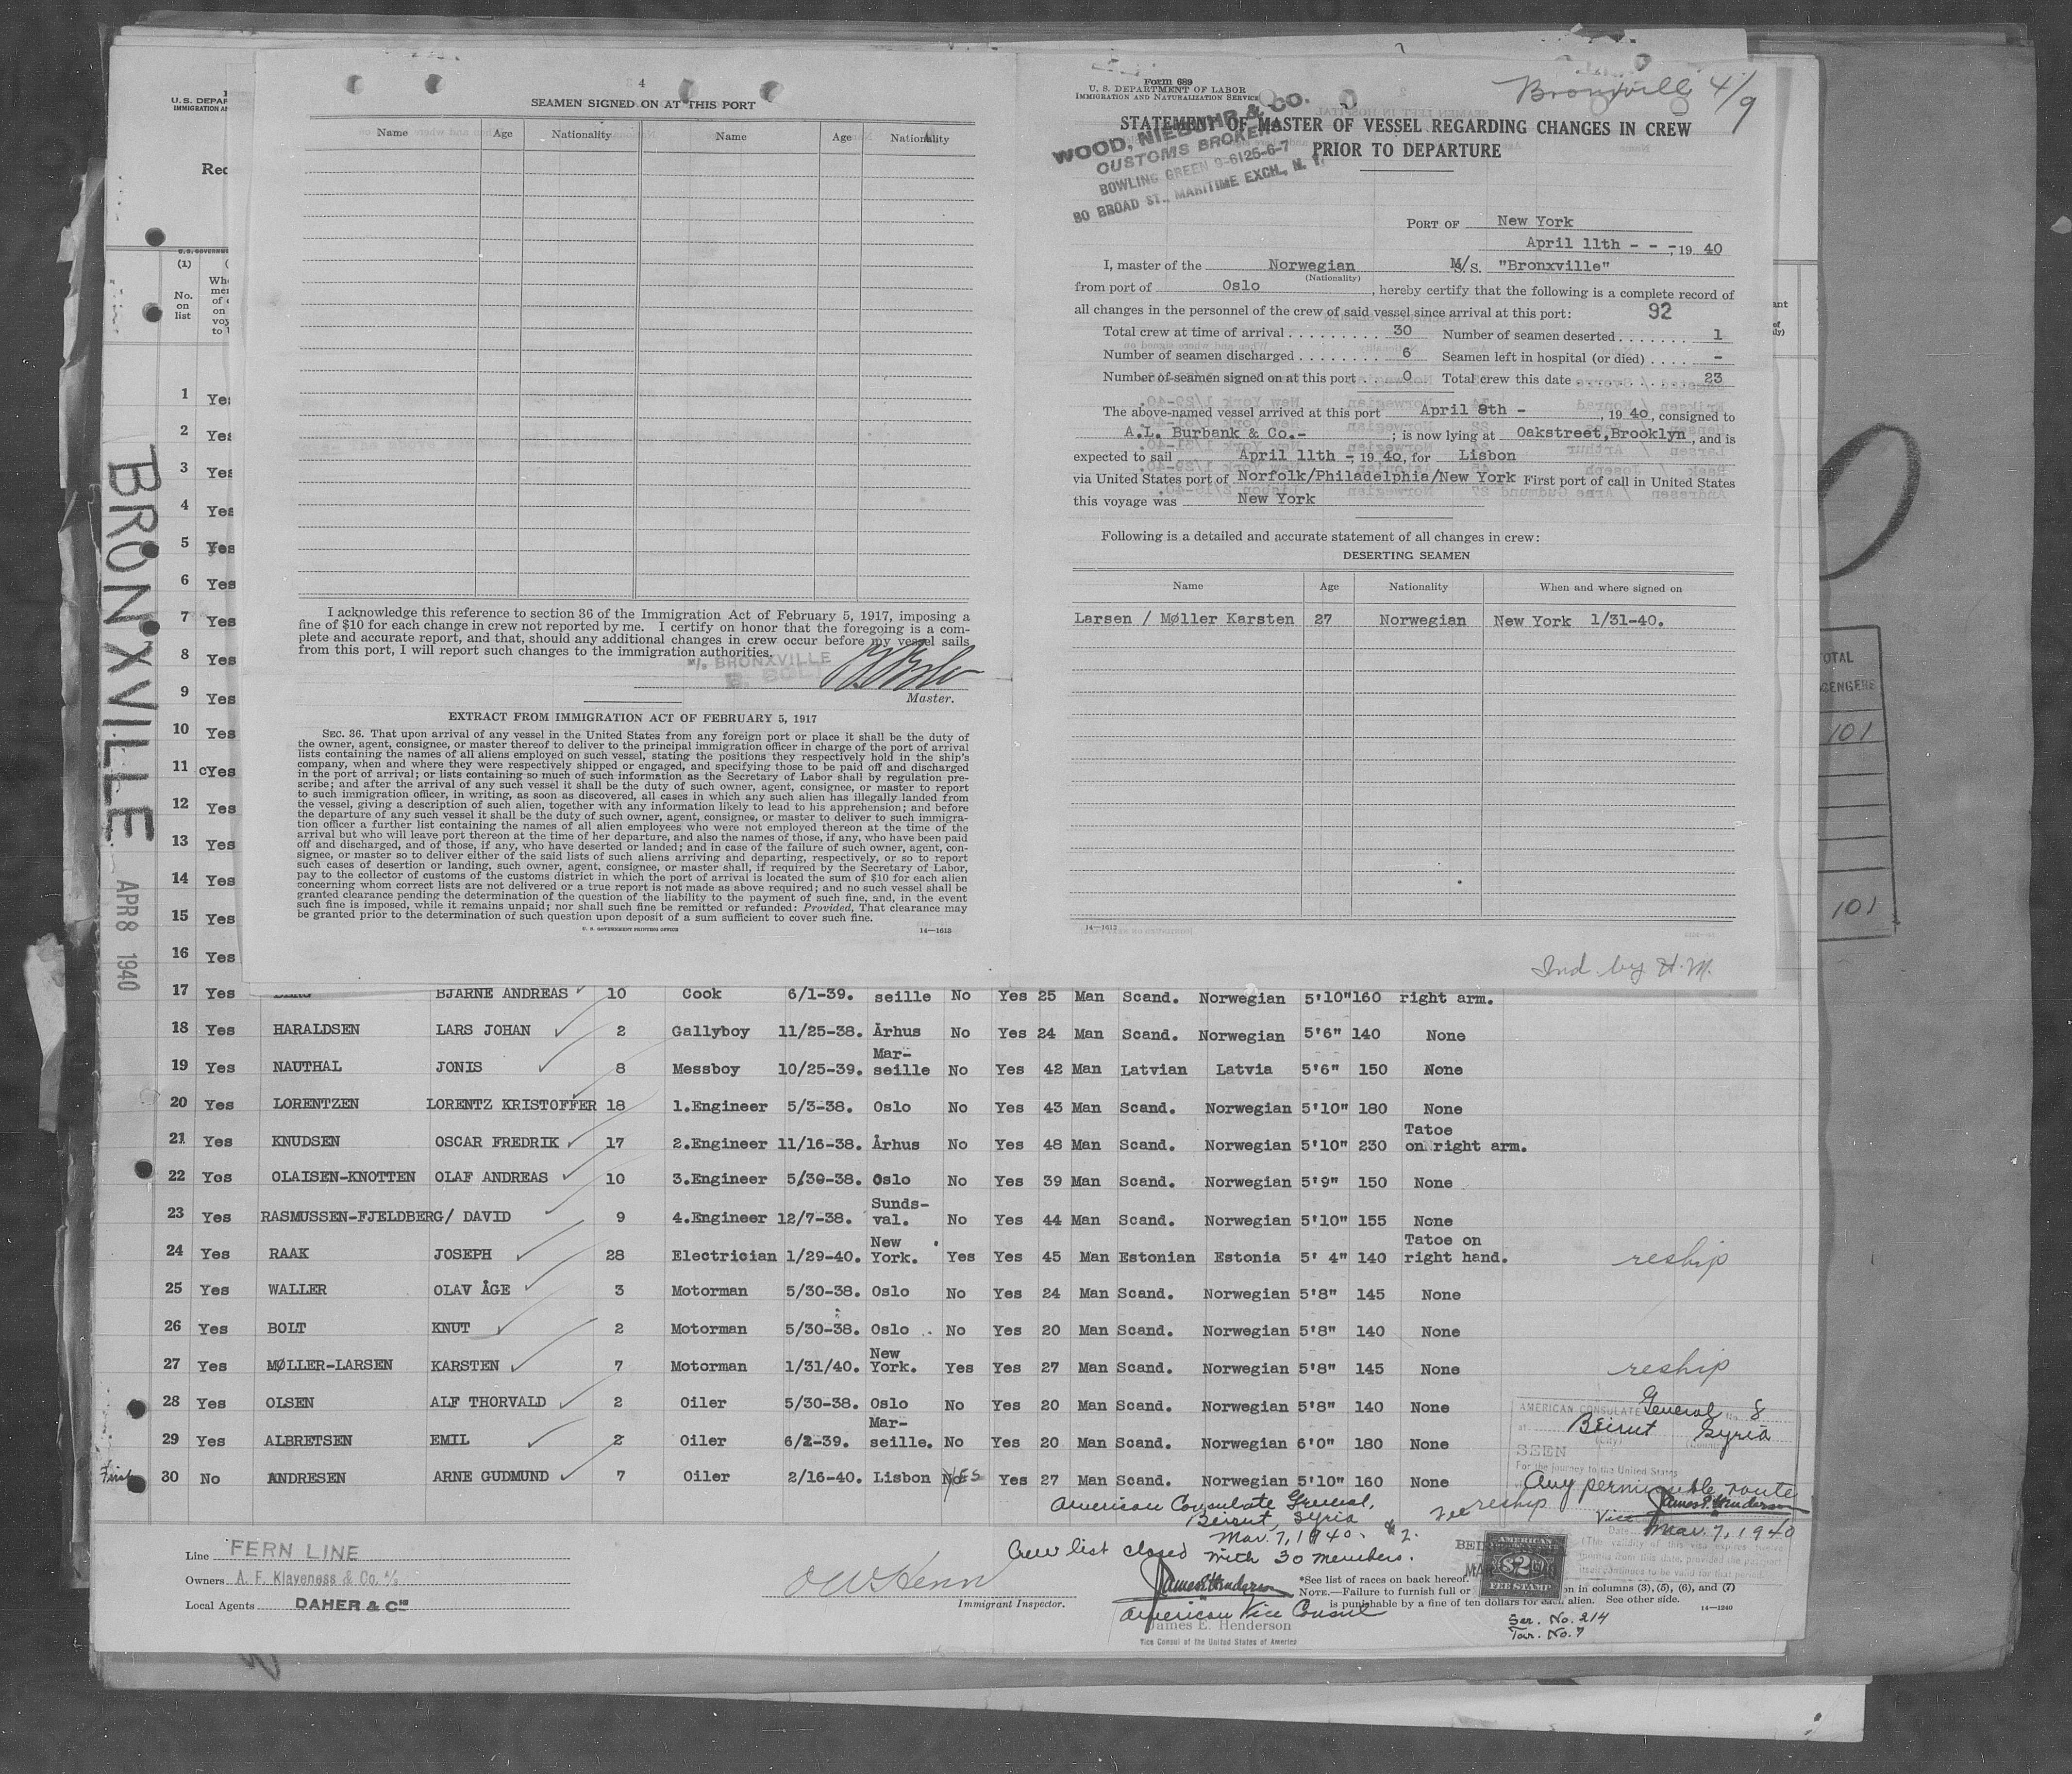 4
SEAMEN SIGNED ON AT THIS PORT
Name Age Nationality Name Age Nationality
I acknowledge this reference to section 36 of the Immigration Act of February 5, 1917, imposing a
fine of $10 for each change in crew not reported by me. I certify on honor that the foregoing is a com-
plete and accurate report, and that, should any additional changes in crew occur before my vessel sails
from this port, I will report such changes to the immigration authorities.
M/S. BRONXVILLE
Master.
EXTRACT FROM IMMIGRATION ACT OF FEBRUARY 5, 1917
SEC. 36. That upon arrival of any vessel in the United States from any foreign port or place it shall be the duty of
the owner, agent, consignee, or master thereof to deliver to the principal immigration officer in charge of the port of arrival
lists containing the names of all aliens employed on such vessel, stating the positions they respectively hold in the ship's
company, when and where they were respectively shipped or engaged, and specifying those to be paid off and discharged
in the port of arrival; or lists containing so much of such information as the Secretary of Labor shall by regulation pre-
scribe; and after the arrival of any such vessel it shall be the duty of such owner, agent, consignee, or master to report
to such immigration officer, in writing, as soon as discovered, all cases in which any such alien has illegally landed from
the vessel, giving a description of such alien, together with any information likely to lead to his apprehension; and before
the departure of any such vessel it shall be the duty of such owner, agent, consignee, or master to deliver to such immigra-
tion officer a further list containing the names of all alien employees who were not employed thereon at the time of the
arrival but who will leave port thereon at the time of her departure, and also the names of those, if any, who have been paid
off and discharged, and of those, if any, who have deserted or landed; and in case of the failure of such owner, agent, con-
signee, or master so to deliver either of the said lists of such aliens arriving and departing, respectively, or so to report
such cases of desertion or landing, such owner, agent, consignee, or master shall, if required by the Secretary of Labor,
pay to the collector of customs of the customs district in which the port of arrival is located the sum of $10 for each alien
concerning whom correct lists are not delivered or a true report is not made as above required; and no such vessel shall be
granted clearance pending the determination of the question of the liability to the payment of such fine, and, in the event
such fine is imposed, while it remains unpaid; nor shall such fine be remitted or refunded: Provided, That clearance may
be granted prior to the determination of such question upon deposit of a sum sufficient to cover such fine.
U. S. GOVERNMENT PRINTING OFFICE 14—1613
Form 689
U. S. DEPARTMENT OF LABOR
IMMIGRATION AND NATURALIZATION SERVICE
Bronxville 4/9
STATEMENT OF MASTER OF VESSEL REGARDING CHANGES IN CREW
PRIOR TO DEPARTURE
WOOD, NIEBUHR & CO.
CUSTOMS BROKERS
BOWLING GREEN 9-6125-6-7
80 BROAD ST., MARITIME EXCH., N. Y.
PORT OF New York
April 11th - - -, 19 40
I, master of the Norwegian M/S. "Bronxville"
(Nationality)
from port of Oslo, hereby certify that the following is a complete record of
all changes in the personnel of the crew of said vessel since arrival at this port: 92
Total crew at time of arrival . . . . . . . . . . 30 Number of seamen deserted . . . . . . . 1
Number of seamen discharged . . . . . . . . 6 Seamen left in hospital (or died) . . . . -
Number of seamen signed on at this port . . 0 Total crew this date . . . . . . . . . . 23
The above-named vessel arrived at this port April 8th -, 19 40, consigned to
A.L. Burbank & Co.-; is now lying at Oakstreet, Brooklyn, and is
expected to sail April 11th -, 19 40, for Lisbon
via United States port of Norfolk/Philadelphia/New York First port of call in United States
this voyage was New York
Following is a detailed and accurate statement of all changes in crew:
DESERTING SEAMEN
Name Age Nationality When and where signed on
Larsen / Møller Karsten 27 Norwegian New York 1/31-40.
14—1613
Ind by H.M.
U.S. DEPAR
IMMIGRATION AN
Rec
(1)
No.
on
list
BRONXVILLE APR 8 1940
1 Yes
2 Yes
3 Yes
4 Yes
5 Yes
6 Yes
7 Yes
8 Yes
9 Yes
10 Yes
11 Yes
12 Yes
13 Yes
14 Yes
15 Yes
16 Yes
17 Yes BERG BJARNE ANDREAS 10 Cook 6/1-39. seille No Yes 25 Man Scand. Norwegian 5'10" 160 right arm.
18 Yes HARALDSEN LARS JOHAN 2 Gallyboy 11/25-38. Århus No Yes 24 Man Scand. Norwegian 5'6" 140 None
19 Yes NAUTHAL JONIS 8 Messboy 10/25-39. Mar-seille No Yes 42 Man Latvian Latvia 5'6" 150 None
20 Yes LORENTZEN LORENTZ KRISTOFFER 18 1.Engineer 5/3-38. Oslo No Yes 43 Man Scand. Norwegian 5'10" 180 None
21 Yes KNUDSEN OSCAR FREDRIK 17 2.Engineer 11/16-38. Århus No Yes 48 Man Scand. Norwegian 5'10" 230 Tatoe on right arm.
22 Yes OLAISEN-KNOTTEN OLAF ANDREAS 10 3.Engineer 5/30-38. Oslo No Yes 39 Man Scand. Norwegian 5'9" 150 None
23 Yes RASMUSSEN-FJELDBERG/ DAVID 9 4.Engineer 12/7-38. Sunds-val. No Yes 44 Man Scand. Norwegian 5'10" 155 None
24 Yes RAAK JOSEPH 28 Electrician 1/29-40. New York. Yes Yes 45 Man Estonian Estonia 5' 4" 140 Tatoe on right hand. reship
25 Yes WALLER OLAV ÅGE 3 Motorman 5/30-38. Oslo No Yes 24 Man Scand. Norwegian 5'8" 145 None
26 Yes BOLT KNUT 2 Motorman 5/30-38. Oslo . No Yes 20 Man Scand. Norwegian 5'8" 140 None
27 Yes MØLLER-LARSEN KARSTEN 7 Motorman 1/31/40. New York. Yes Yes 27 Man Scand. Norwegian 5'8" 145 None reship
28 Yes OLSEN ALF THORVALD 2 Oiler 5/30-38. Oslo No Yes 20 Man Scand. Norwegian 5'8" 140 None
29 Yes ALBRETSEN EMIL 2 Oiler 6/2-39. Mar-seille. No Yes 20 Man Scand. Norwegian 6'0" 180 None
First 30 No ANDRESEN ARNE GUDMUND 7 Oiler 2/16-40. Lisbon No YES Yes 27 Man Scand. Norwegian 5'10" 160 None
reship
AMERICAN CONSULATE General No. 8
at Beirut Syria
(City) (Country)
SEEN
For the journey to the United States
Any permissible route
James E. Henderson
Vice
Date Mar. 7, 1940
American Consulate General,
Beirut, Syria
Mar. 7, 1940. #2.
Crew list closed with 30 members.
James E Henderson
American Vice Consul
James E. Henderson
Vice Consul of the United States of America
AMERICAN
$2
FEE STAMP
Line FERN LINE
Owners A. F. Klaveness & Co. A/S
Local Agents DAHER & CIE
Immigrant Inspector.
*See list of races on back hereof.
NOTE.—Failure to furnish full or on in columns (3), (5), (6), and (7)
is punishable by a fine of ten dollars for each alien. See other side.
14—1240
Ser. No. 214
Tar. No. 7
TOTAL
101
101